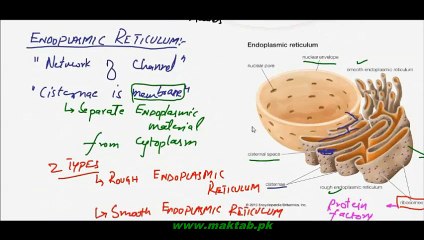 ENDOPLASMIC RETICULUM:-
"Network of Channel"
"Cisternae is membrane"
↳ Separate Endoplasmic
material
from cytoplasm
2 TYPES
↳ ROUGH ENDOPLASMIC
RETICULUM
↳ Smooth ENDOPLASMIC RETICULUM
Endoplasmic reticulum
nuclear envelope
nuclear pore
smooth endoplasmic reticulum
cisternal space
cisternae
rough endoplasmic reticulum
ribosomes
Protein
factory
www.maktab.pk